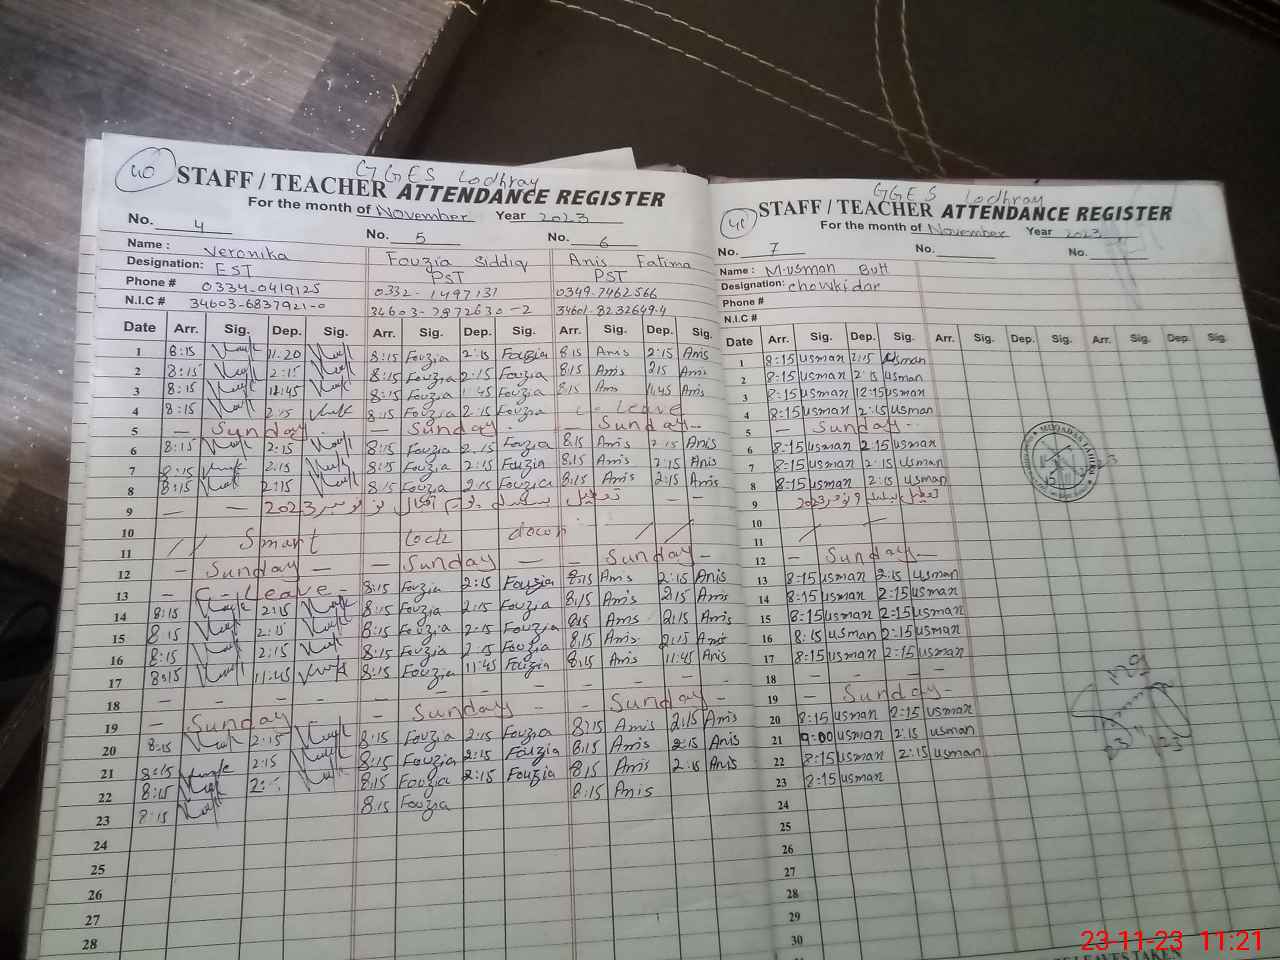 40 GGES Lodhray
STAFF / TEACHER ATTENDANCE REGISTER
For the month of November Year 2023
No. 4 No. 5 No. 6
Name : Veronika Fouzia Siddiq Anis Fatima
Designation: EST PST PST
Phone # 0334-0419125 0332-1497131 0349-7462566
N.I.C # 34603-6837921-0 34603-7872630-2 34601-8232649-4
Date Arr. Sig. Dep. Sig. Arr. Sig. Dep. Sig. Arr. Sig. Dep. Sig.
1 8:15 11.20 8:15 Fouzia 2:15 Fouzia 8:15 Anis 2:15 Anis
2 8:15 2:15 8:15 Fouzia 2:15 Fouzia 8:15 Anis 2:15 Anis
3 8:15 8:15 Fouzia 1:45 Fouzia 8:15 Anis 11:45 Anis
4 8:15 2:15 8:15 Fouzia 2:15 Fouzia C-Leave
5 — Sunday — Sunday - — Sunday -
6 8:15 2:15 8:15 Fouzia 2:15 Fouzia 8:15 Anis 2:15 Anis
7 8:15 2:15 8:15 Fouzia 2:15 Fouzia 8:15 Anis 2:15 Anis
8 8:15 2:15 8:15 Fouzia 2:15 Fouzia 8:15 Anis 2:15 Anis
9 — — تعطیل بسلسلہ یوم اقبال 9 نومبر 2023 — —
10 Smart lock down
11
12 — Sunday — — Sunday — — Sunday —
13 — C-Leave - 8:15 Fouzia 2:15 Fouzia 8:15 Anis 2:15 Anis
14 8:15 2:15 8:15 Fouzia 2:15 Fouzia 8:15 Anis 2:15 Anis
15 8:15 2:15 8:15 Fouzia 2:15 Fouzia 8:15 Anis 2:15 Anis
16 8:15 2:15 8:15 Fouzia 2:15 Fouzia 8:15 Anis 2:15 Anis
17 8:15 11:45 8:15 Fouzia 11:45 Fouzia 8:15 Anis 11:45 Anis
18 — — — — — — — — —
19 — Sunday — Sunday — — Sunday -
20 8:15 2:15 8:15 Fouzia 2:15 Fouzia 8:15 Anis 2:15 Anis
21 8:15 2:15 8:15 Fouzia 2:15 Fouzia 8:15 Anis 2:15 Anis
22 8:15 8:15 Fouzia 2:15 Fouzia 8:15 Anis 2:15 Anis
23 8:15 8:15 Fouzia 8:15 Anis
24
25
26
27
28
41 GGES Lodhray
STAFF / TEACHER ATTENDANCE REGISTER
For the month of November Year 2023
No. 7 No. No.
Name : M.usman Butt
Designation: chowkidar
Phone #
N.I.C #
Date Arr. Sig. Dep. Sig. Arr. Sig. Dep. Sig. Arr. Sig. Dep. Sig.
1 8:15 usman 2:15 usman
2 8:15 usman 2:15 usman
3 8:15 usman 12:15 usman
4 8:15 usman 2:15 usman
5 — Sunday -
6 8:15 usman 2:15 usman
7 8:15 usman 2:15 usman
8 8:15 usman 2:15 usman
9 تعطیل بسلسلہ 9 نومبر 2023
10
11
12 — Sunday —
13 8:15 usman 2:15 usman
14 8:15 usman 2:15 usman
15 8:15 usman 2:15 usman
16 8:15 usman 2:15 usman
17 8:15 usman 2:15 usman
18 — — — —
19 — Sunday -
20 8:15 usman 2:15 usman
21 9:00 usman 2:15 usman
22 8:15 usman 2:15 usman
23 8:15 usman
24
25
26
27
28
29
30
LEAVES TAKEN
23-11-23 11:21